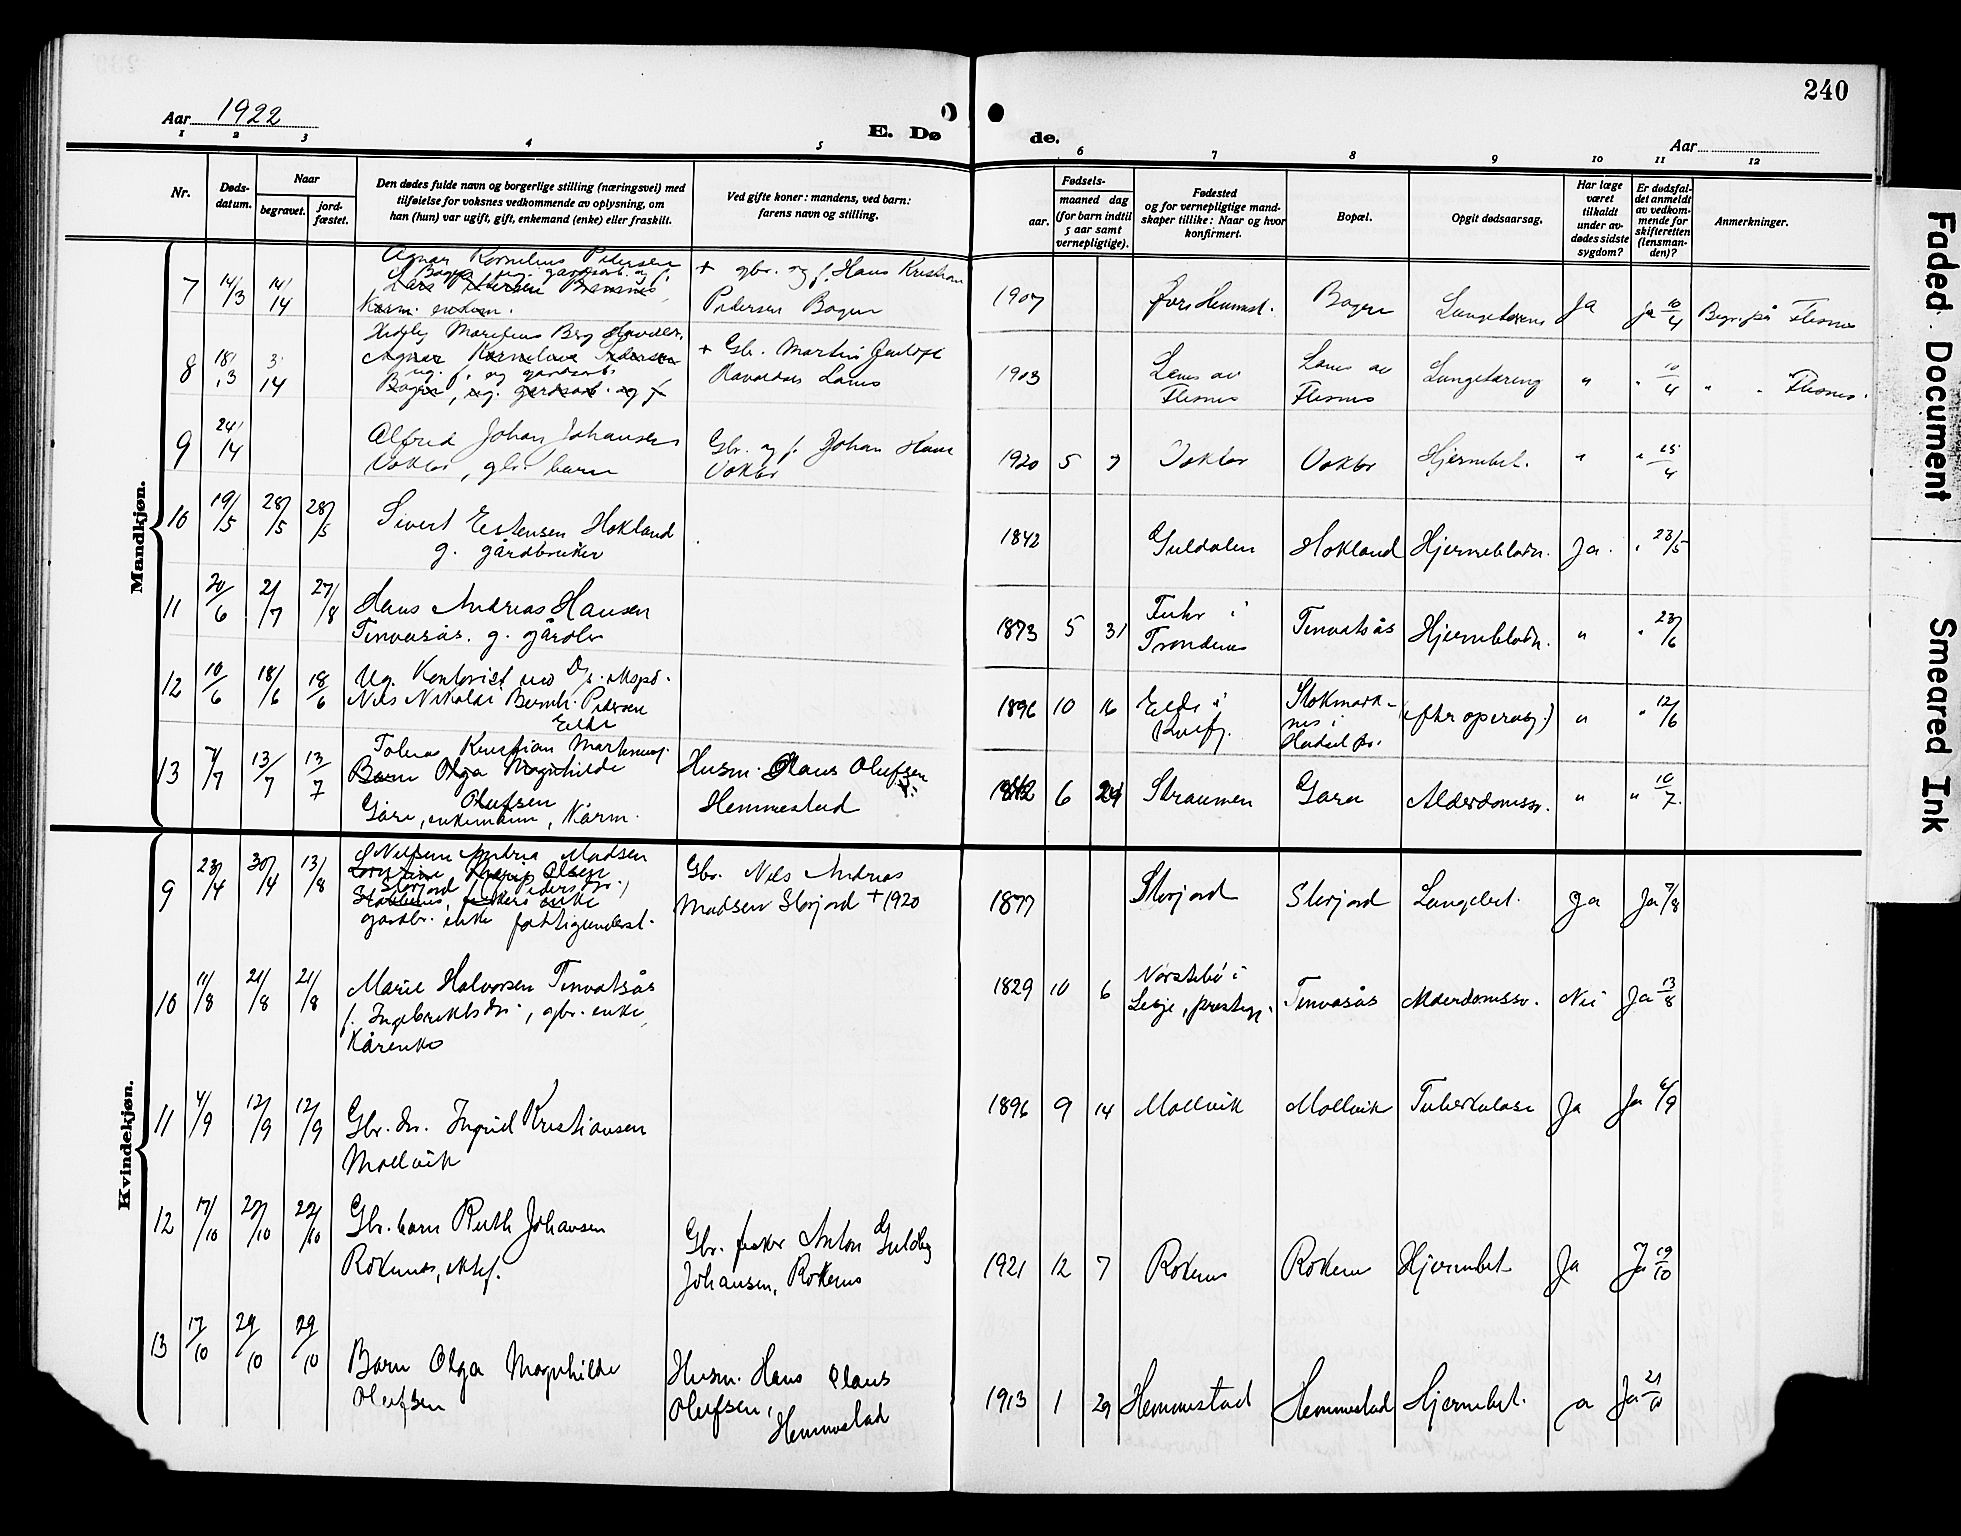 240
Aar 1922
E. Dø
de.
Aar
1 2 3 4 5 6 7 8 9 10 11 12
Nr.
Døds-
datum.
Naar
begravet.
jord-
fæstet.
Den dødes fulde navn og borgerlige stilling (næringsvei) med
tilføielse for voksnes vedkommende av oplysning, om
han (hun) var ugift, gift, enkemand (enke) eller fraskilt.
Ved gifte koner: mandens, ved barn:
farens navn og stilling.
Fødsels-
aar. maaned dag
(for barn indtil
5 aar samt
vernepligtige).
Fødested
og for vernepligtige mand-
skaper tillike: Naar og hvor
konfirmert.
Bopæl.
Opgit dødsaarsag.
Har læge
været
tilkaldt
under av-
dødes sidste
sygdom?
Er dødsfal-
det anmeldt
av vedkom-
mende for
skifteretten
(lensman-
den)?
Anmerkninger.
Mandkjøn.
7 14/3 14/4
Agnar Kornelius Pedersen
Bogen ug. gardsarb. og f.
Lars Petersen
+ gbr. og f. Hans Kristian
Pedersen Bogen
1907 Bogen Lungetæring Ja Ja 10/4 Begr. på Flesnes
8 18/3 3/14
Berg
Agnar Kornelius Pedersen
ug. f. og gardsarb.
Bogen, ug. gardsarb. og f.
+ Gbr. Martin
1903
Lanes av
Flesnes
Lanes av
Flesnes
Lungetæring " " 10/4 " " Flesnes.
9 24/4
Alfred Johan Johansen
Voktor, gbr. barn
Gbr. og f. Johan Hans
Voktor
1920 5 7 Voktor Voktor Hjernebet. " " 25/4
10 19/5 28/5 28/5
Sivert Estensen Hokland
g. gårdbruker
1842 Guldalen Hokland Hjerneblødn. Ja. " 23/5
11 20/6 2/7 27/8
Hans Andreas Hansen
Tenvasås. g. gårdbr
1873 5 31
i
Trondenes
Tenvatsås Hjerneblødn. " " 23/6
12 10/6 18/6 18/6
Ug. Kontorist ved D/s. eksped.
Nils Nikolai Bernh. Pedersen
Elde
1896 10 16
Elde i
Kvæfj.
Stokmark-
nes i
Hadsel
(efter operasj.) " " 12/6
13 7/7 13/7 13/7
Tobias Kristian Martinus
Barn Olga Magnhilde
Olufsen
Gåre, enkemann, Kårm.
Husm. Hans Olufsen
Hemmestad
1842 6 24 Straumen Gara Alderdomssv. " " 10/7.
Kvindekjøn.
9 23/4 30/4 13/8
Madsen
Olsen
Storjord f. Pedersdtr.,
enke
gardbr. enke fattigunderst.
Gbr. Nils Andreas
Madsen Storjord + 1920
1877 Storjord Storjord Lungebet. Ja Ja 7/8
10 11/8 21/8 21/8
Marie Halvorsen Tenvatsås
f. Ingebrektsdtr., gbr. enke,
Kårenke
1829 10 6
Nørstebø i
Lesje, prestegj.
Tenvasås Alderdomssv. Nei Ja 13/8
11 4/9 12/9 12/9
Gbr. dtr. Ingrid Kristiansen
Møllvik
1896 9 14 Møllvik Møllvik Tuberkulose Ja Ja 6/9
12 17/10 22/10 22/10
Gbr. barn Ruth Johansen
Røkenes, ektef.
Gbr. fisker Anton Guldbg
Johansen, Røkenes
1921 12 7 Røkenes Røkenes Hjernebet Ja Ja 19/10
13 17/10 29/10 29/10
Barn Olga Magnhilde
Olufsen
Husm. Hans Claus
Olufsen,
Hemmestad
1913 1 29 Hemmestad Hemmestad Hjernebet. Ja Ja 21/10
Faded Document
Smeared Ink